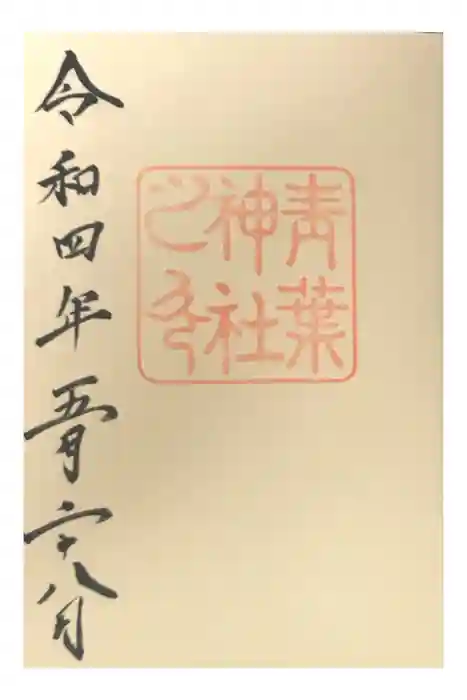 青葉
神社
之印
令和四年五月二十八日